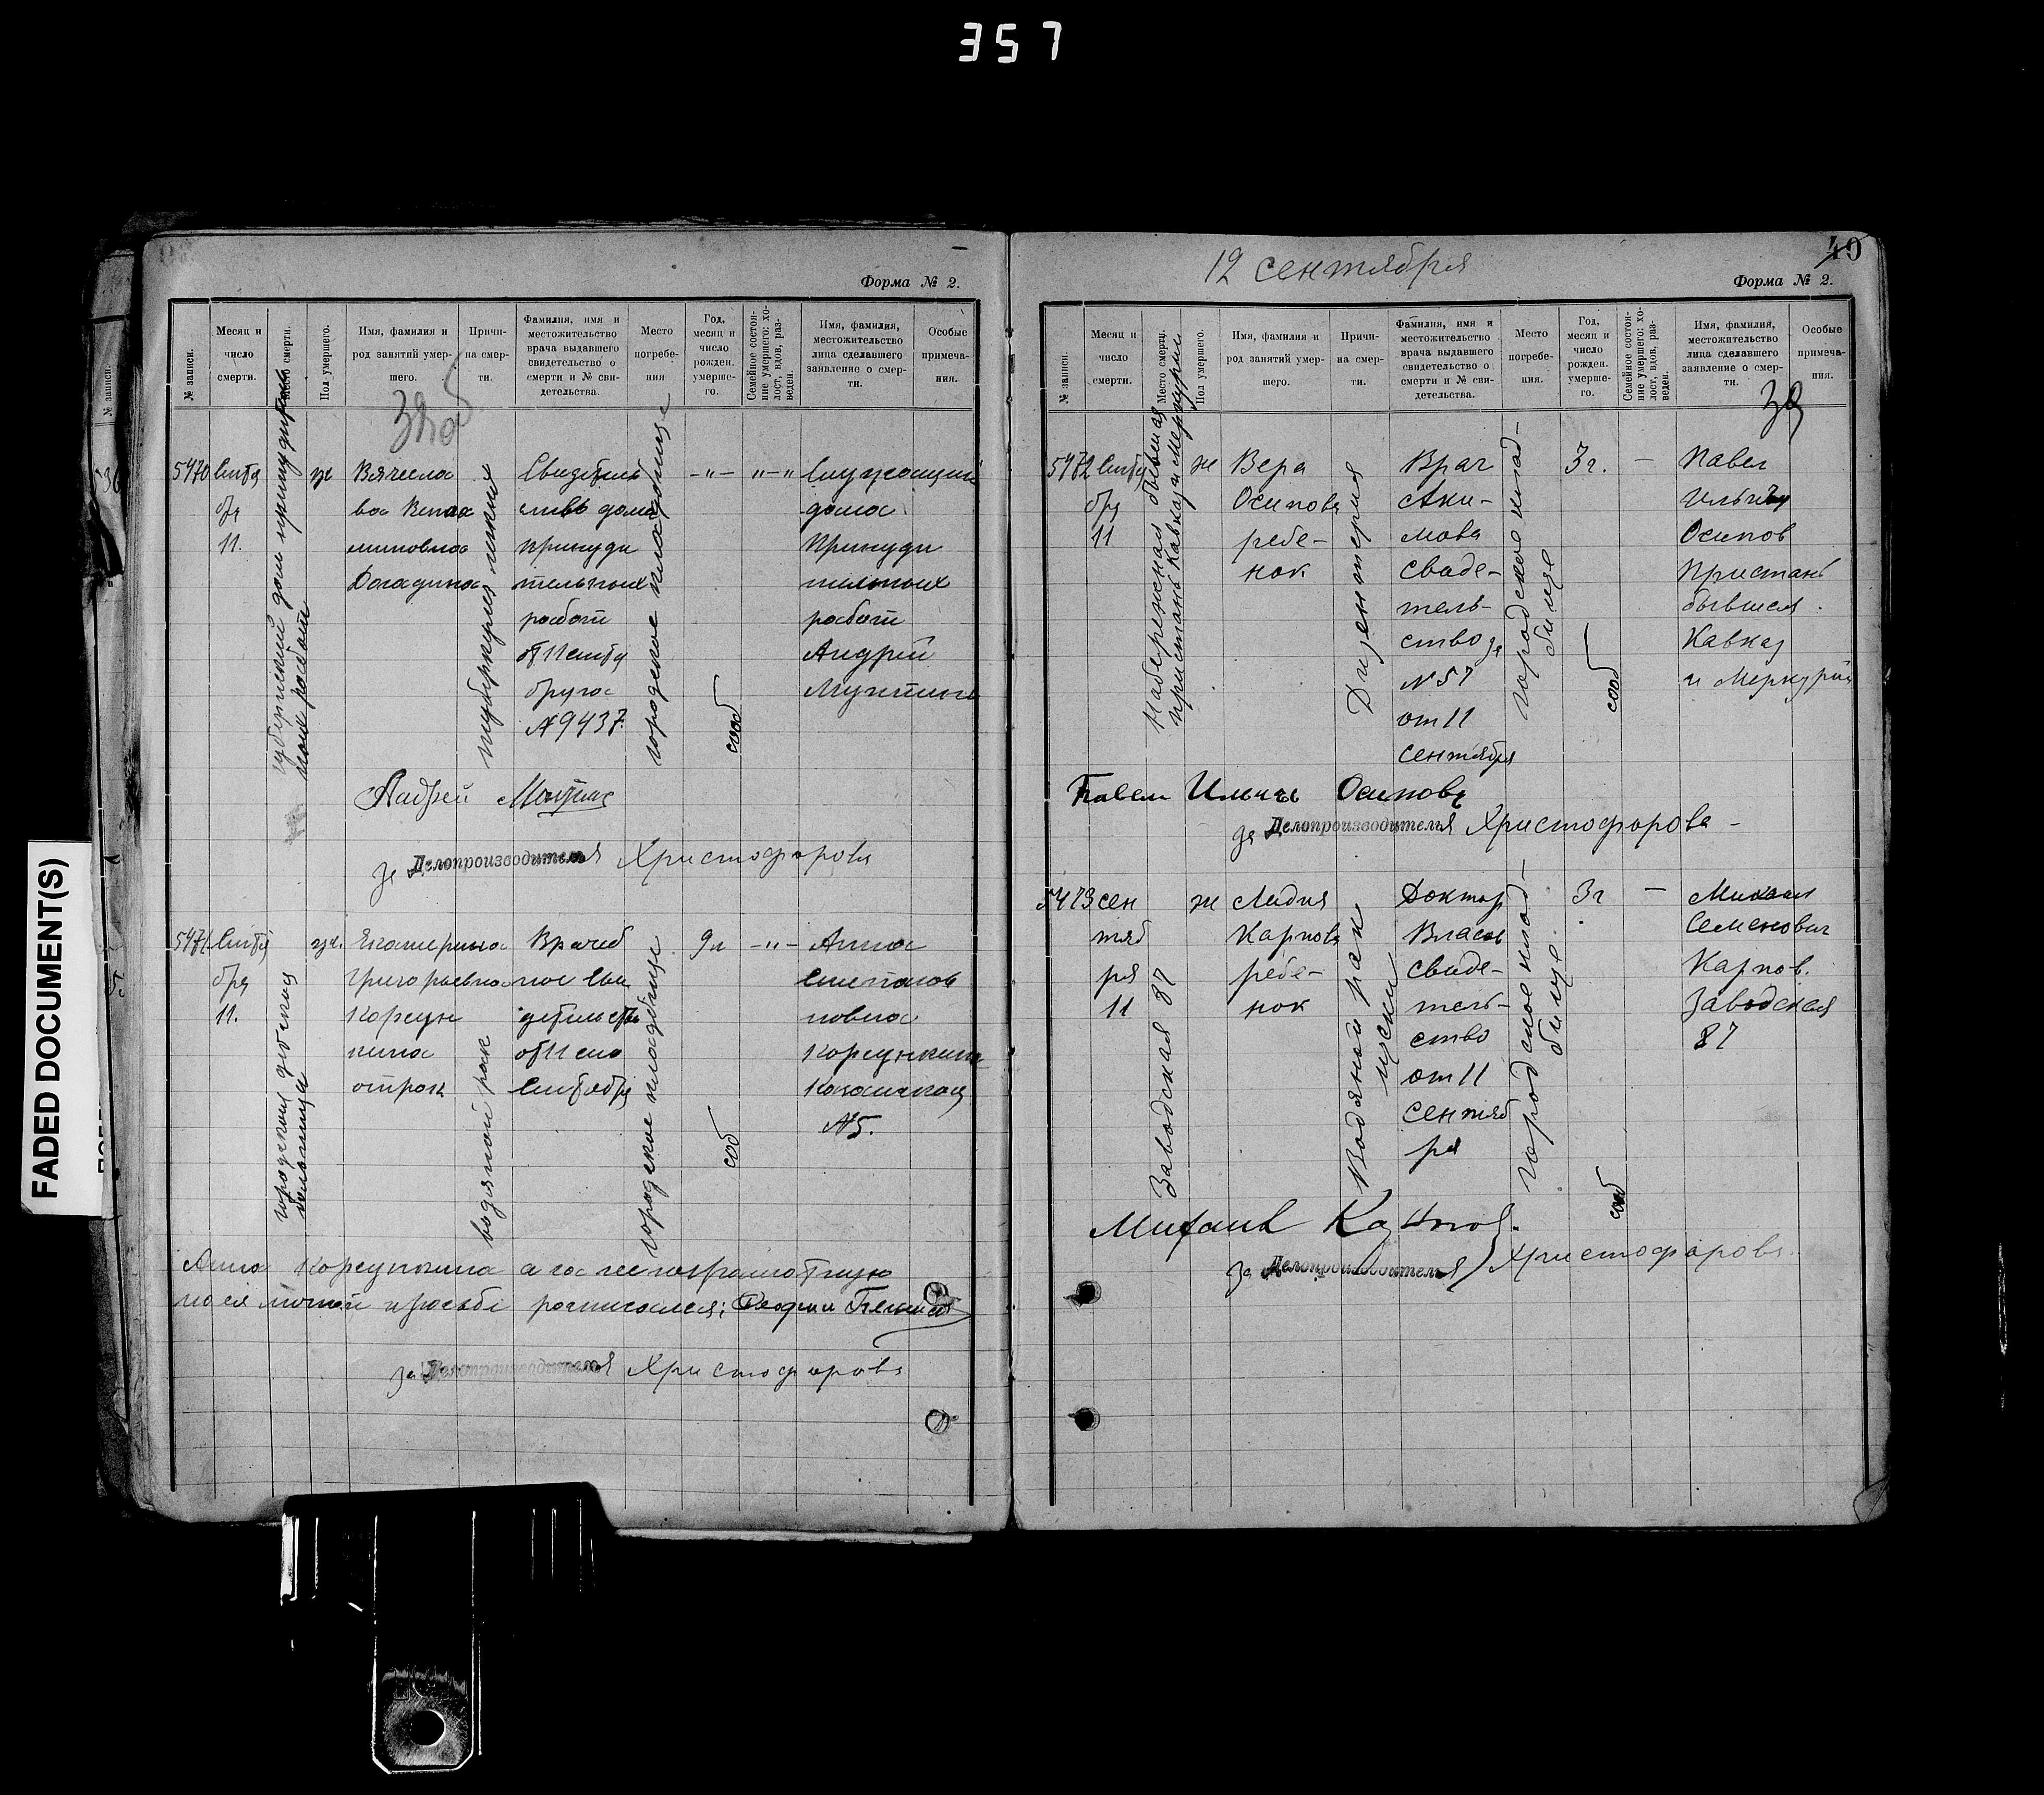 357
FADED DOCUMENT(S)
Форма № 2.
№ записи.
Месяц и число смерти.
Место смерти.
Пол умершего.
Имя, фамилия и род занятий умершего.
Причина смерти.
Фамилия, имя и местожительство врача выдавшего свидетельство о смерти и № свидетельства.
Место погребения
Год, месяц и число рожден. умершего.
Семейное состояние умершего: холост, вдов, разведен.
Имя, фамилия, местожительство лица сделавшего заявление о смерти.
Особые примечания.
5470
11.
губернский дом принудитель
ных работ
туберкулез легких
работ
№ 9437
городское кладбище
сооб
Служащий
дома
Принуди
тельных
работ
Андрей
за Делопроизводителя Христофорова
5471
11.
городская детская
больница
Екатерина
Григорьевна
Корсун
кина
водяной рак
Врачеб
городское кладбище
9 л
сооб
Анна
Степанов
овна
Корсункина
№ 5.
Анна Корсункина а за неграмотную
по ея личной просьбе росписался:
за Делопроизводителя Христофорова
12 сентября
40
Форма № 2.
№ записи.
Месяц и число смерти.
Место смерти.
Пол умершего.
Имя, фамилия и род занятий умершего.
Причина смерти.
Фамилия, имя и местожительство врача выдавшего свидетельство о смерти и № свидетельства.
Место погребения.
Год, месяц и число рожден. умершего.
Семейное состояние умершего: холост, вдов, разведен.
Имя, фамилия, местожительство лица сделавшего заявление о смерти.
Особые примечания.
39
5472
11
Набережная бывшая
пристань Кавказ и Меркурий
ж
Вера
Осипова
ребе-
нок
Дизентерия
Врач
Аки-
мова
Свиде-
тель-
ство за
№ 57
от 11
сентября
городское клад-
бище
3 г.
сооб
Павел
Ильич
Осипов
Пристань
бывшая
Кавказ
и Меркурий
Павел Ильичъ Осиповъ
за Делопроизводителя Христофорова
5473
сен
тяб
ря
11
Заводская 87
ж
Лидия
Карпова
ребе-
нок
Водяной рак
щеки
Доктор
Власов
свиде-
тель-
ство
от 11
сентяб
ря
городское клад-
бище.
3 г
сооб
Михаил
Семенович
Карпов.
Заводская
87
Михаил Карпов.
за Делопроизводителя Христофорова